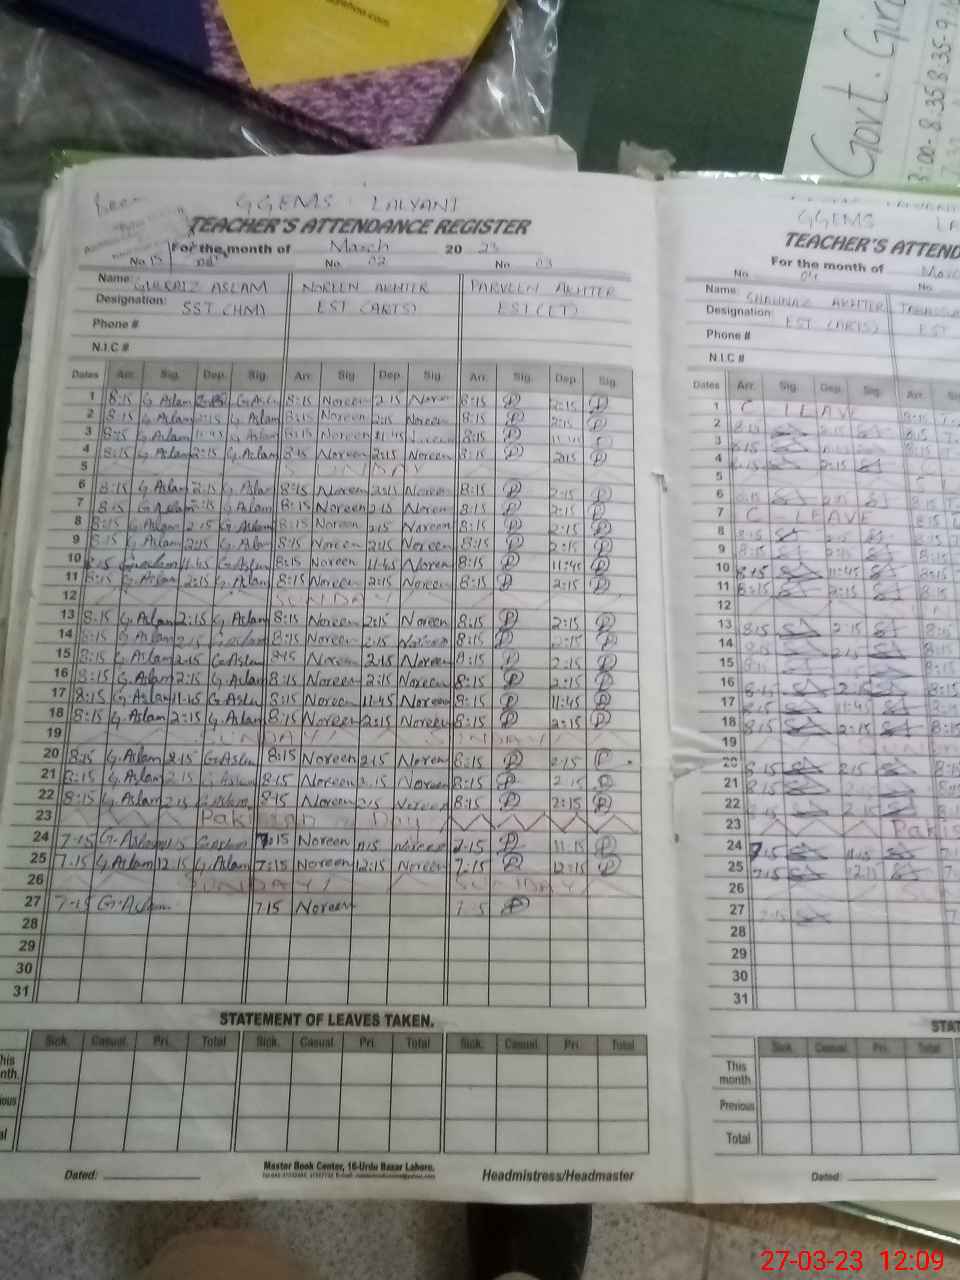 yahoo.com
Govt. Gir
8:35-9:
8:00-8.35
GGEMS LALYANI
TEACHER'S ATTENDANCE REGISTER
For the month of March 2023
No. No. 02 No. 03
Name: GULRAIZ ASLAM NOREEN AKHTER PARVEEN AKHTER
Designation: SST (HM) EST (ARTS) EST (ET)
Phone #
N.I.C #
Dates Arr. Sig. Dep. Sig. Arr. Sig. Dep. Sig. Arr. Sig. Dep. Sig.
1 8:15 G. Aslam 2:15 G. Aslam 8:15 Noreen 2:15 Noreen 8:15 2:15
2 8:15 G. Aslam 2:15 G. Aslam 8:15 Noreen 2:15 Noreen 8:15 2:15
3 8:15 G. Aslam 11:45 G. Aslam 8:15 Noreen 11:45 8:15 11:45
4 8:15 G. Aslam 2:15 G. Aslam 8:15 Noreen 2:15 Noreen 8:15 2:15
5 SUNDAY
6 8:15 G. Aslam 2:15 G. Aslam 8:15 Noreen 2:15 Noreen 8:15 2:15
7 8:15 G. Aslam 2:15 G. Aslam 8:15 Noreen 2:15 Noreen 8:15 2:15
8 8:15 G. Aslam 2:15 G. Aslam 8:15 Noreen 2:15 Noreen 8:15 2:15
9 8:15 G. Aslam 2:15 G. Aslam 8:15 Noreen 2:15 Noreen 8:15 2:15
10 8:15 11:45 G. Aslam 8:15 Noreen 11:45 Noreen 8:15 11:45
11 8:15 G. Aslam 2:15 G. Aslam 8:15 Noreen 2:15 Noreen 8:15 2:15
12 SUNDAY
13 8:15 G. Aslam 2:15 G. Aslam 8:15 Noreen 2:15 Noreen 8:15 2:15
14 8:15 G. Aslam 2:15 G. Aslam 8:15 Noreen 2:15 Noreen 8:15 2:15
15 8:15 G. Aslam 2:15 G. Aslam 8:15 Noreen 2:15 Noreen 8:15 2:15
16 8:15 G. Aslam 2:15 G. Aslam 8:15 Noreen 2:15 Noreen 8:15 2:15
17 8:15 G. Aslam 11:45 G. Aslam 8:15 Noreen 11:45 Noreen 8:15 11:45
18 8:15 G. Aslam 2:15 G. Aslam 8:15 Noreen 2:15 Noreen 8:15 2:15
19 SUNDAY SUNDAY
20 8:15 G. Aslam 2:15 G. Aslam 8:15 Noreen 2:15 Noreen 8:15 2:15
21 8:15 G. Aslam 2:15 G. Aslam 8:15 Noreen 2:15 Noreen 8:15 2:15
22 8:15 G. Aslam 2:15 G. Aslam 8:15 Noreen 2:15 Noreen 8:15 2:15
23 Pakistan Day
24 7:15 G. Aslam 11:15 G. Aslam 7:15 Noreen 11:15 Noreen 7:15 11:15
25 7:15 G. Aslam 12:15 G. Aslam 7:15 Noreen 12:15 Noreen 7:15 12:15
26 SUNDAY SUNDAY
27 7:15 G. Aslam 7:15 Noreen 7:15
28
29
30
31
STATEMENT OF LEAVES TAKEN.
Sick. Casual. Pri. Total Sick. Casual Pri. Total Sick. Casual. Pri. Total
Dated:
Master Book Center, 16-Urdu Bazar Lahore.
Headmistress/Headmaster
GGEMS LA
TEACHER'S ATTEND
For the month of Marc
No. 04 No.
Name: SHAHNAZ AKHTER
Designation: EST (ARTS) EST
Phone #
N.I.C #
Dates Arr. Sig. Dep. Sig. Arr.
1 C LEAVE 8:15
2 8:15 2:15 8:15
3 8:15
4 8:15 2:15
5
6 8:15 2:15 8:15
7 C LEAVE 8:15
8 8:15 2:15 8:15
9 8:15 2:15 8:15
10 8:15 11:45 8:15
11 8:15 2:15 8:15
12
13 8:15 2:15 8:15
14 8:15 2:15
15 8:15 8:15
16 8:15 2:15 8:15
17 8:15 11:45
18 8:15 2:15 8:15
19
20 8:15 2:15 8:15
21 8:15 2:15
22 8:15 2:15 8:15
23 Pakis
24 7:15 11:15
25 7:15 12:15
26
27 7:15
28
29
30
31
STAT
Sick. Casual. Pri. Total Sick
This month
Previous
Total
Dated:
27-03-23 12:09